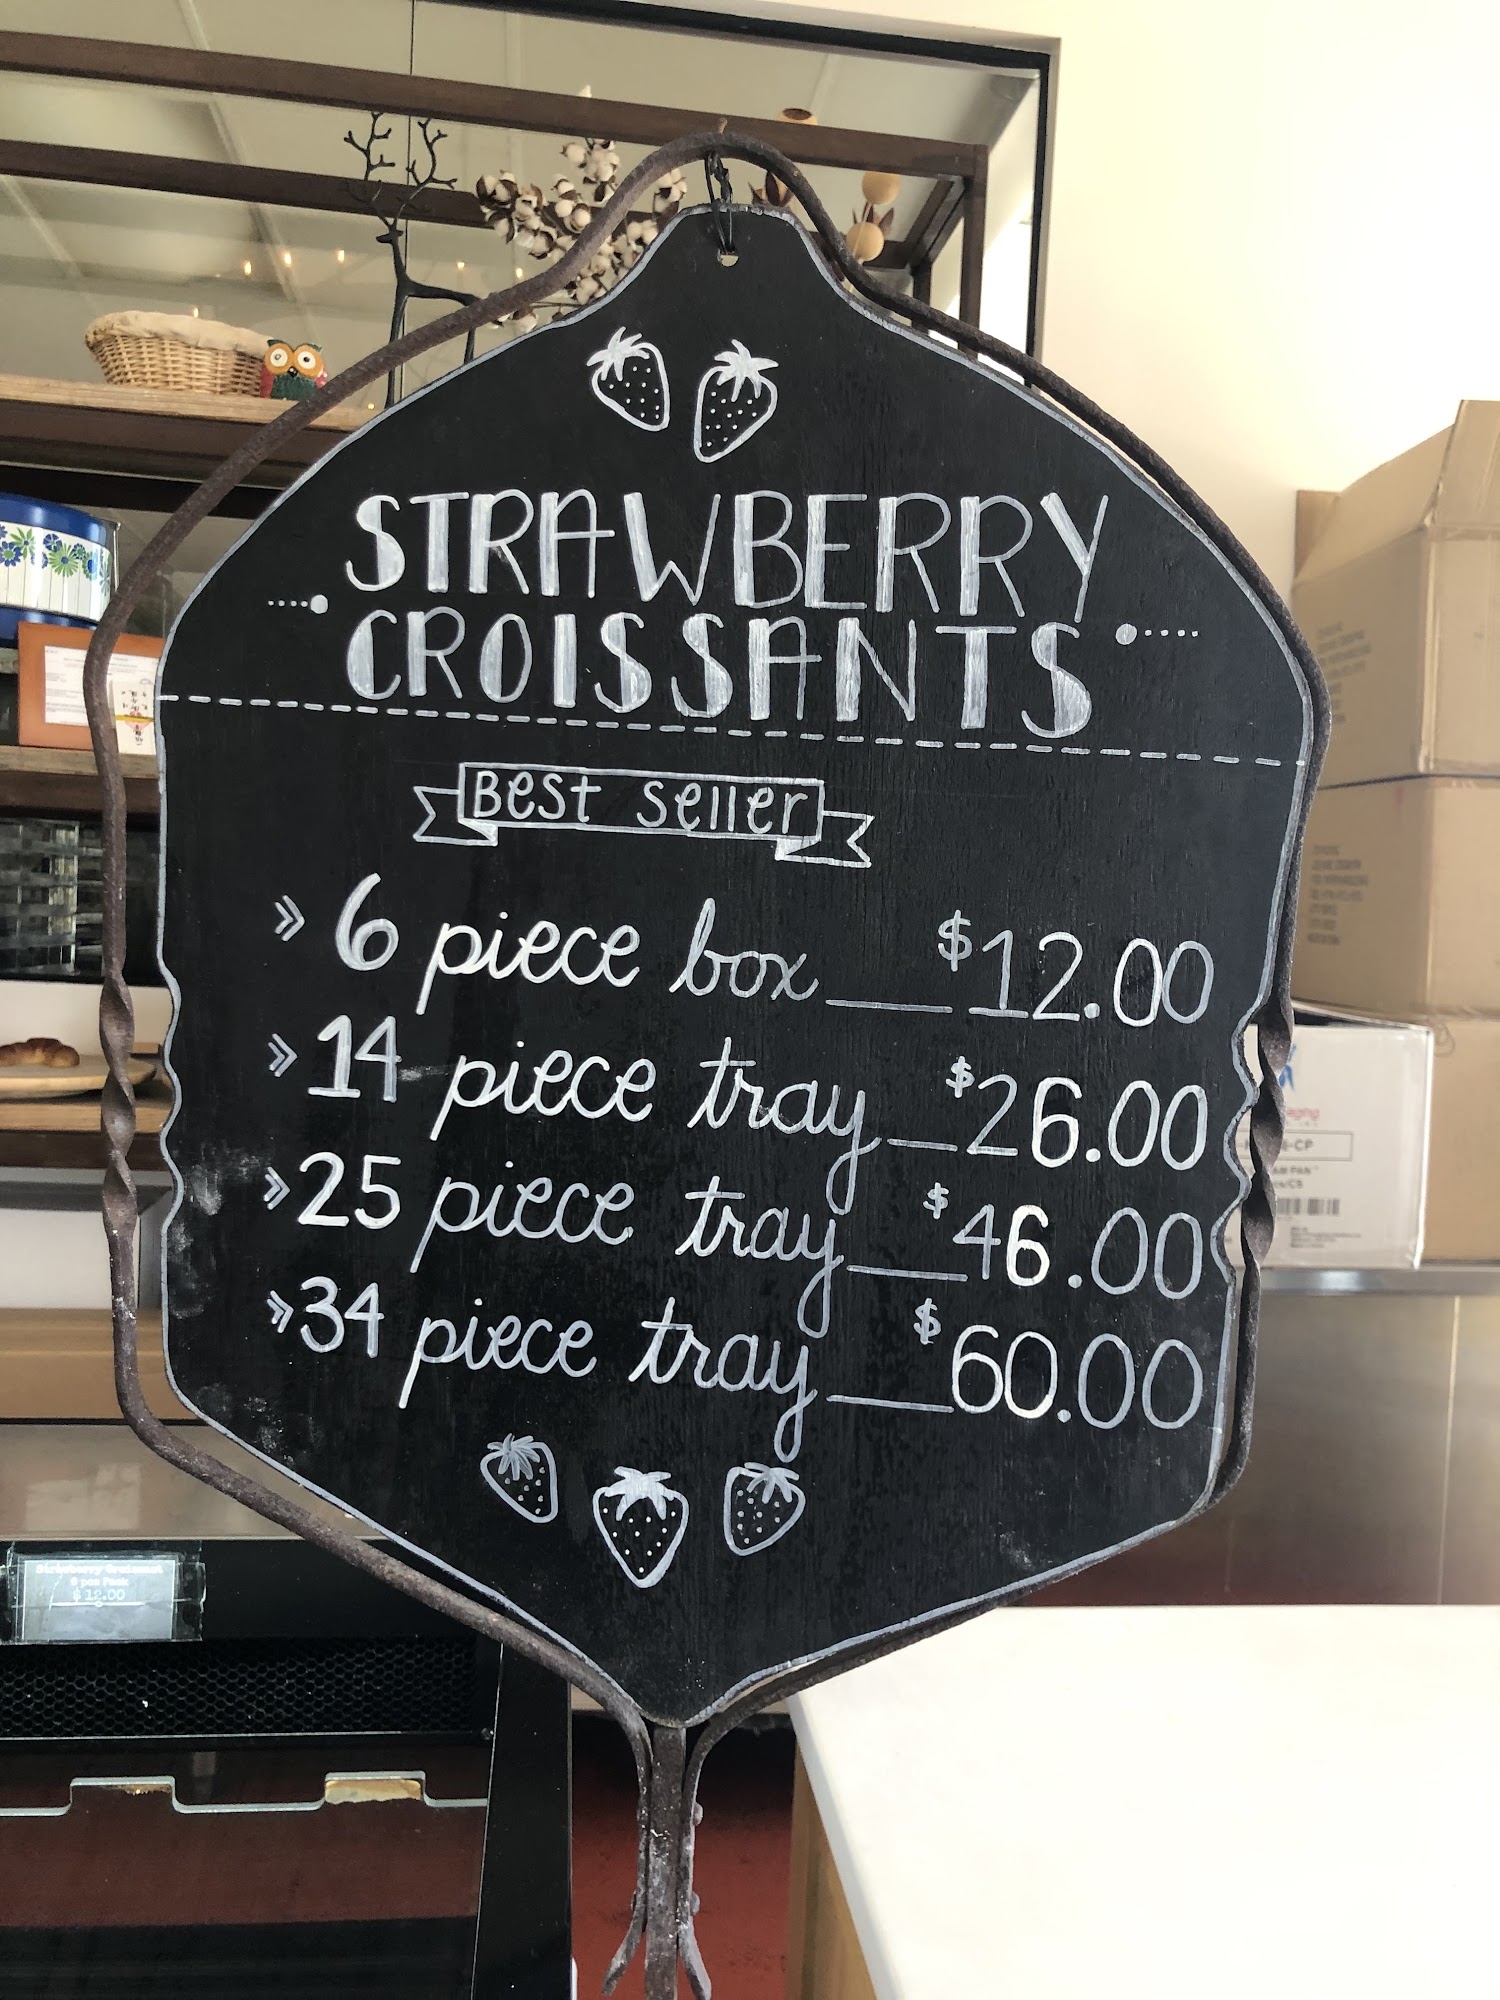 STRAWBERRY
CROISSANTS
Best Seller
» 6 piece box $12.00
» 14 piece tray $26.00
» 25 piece tray $46.00
» 34 piece tray $60.00
Strawberry Croissant
6 pcs Pack
$12.00
-CP